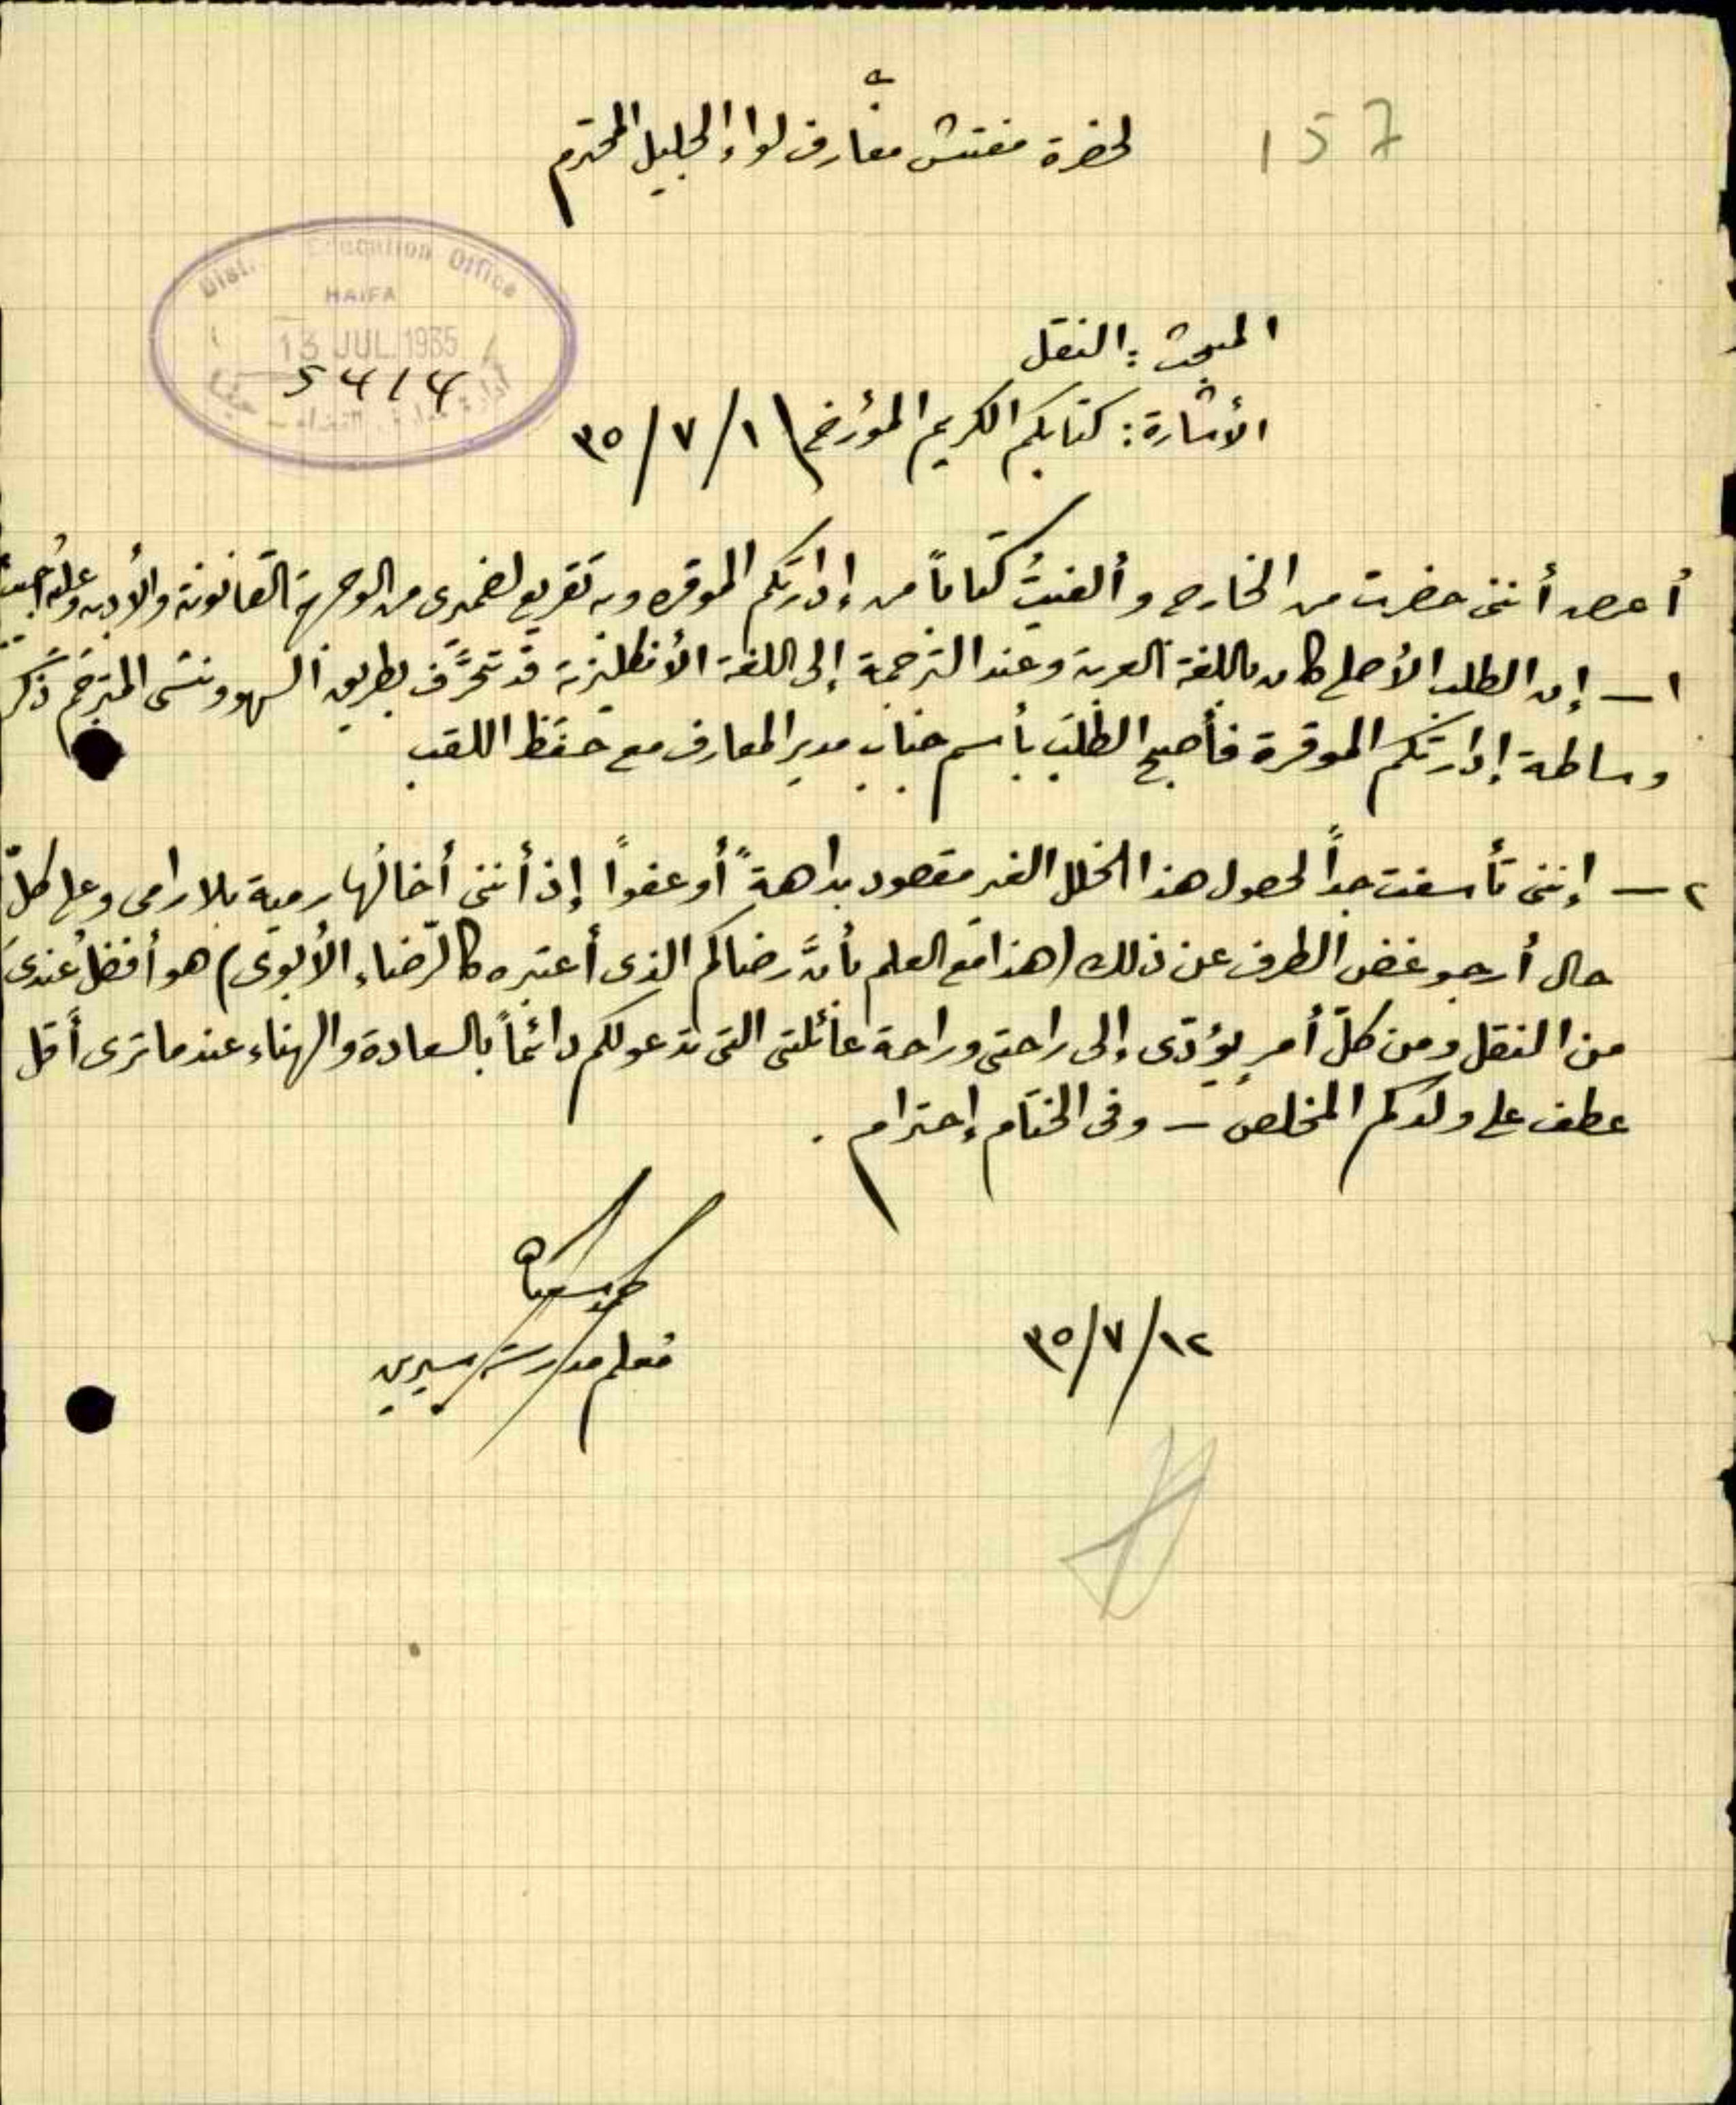 157
لحضرة مفتش معارف لواء الجليل المحترم
Dist. Education Office
HAIFA
13 JUL 1935
المبحث: النقل
الأشارة: كتابكم الكريم المؤرخ ١/٧/٣٥
أعرض أنني حضرت من الخارج وألفيتُ كتاباً من إدارتكم الموقره وبه تقريع لضميرى من الوجهة القانونية والأدبيه وعليه أجيب
١ – إن الطلب الأصلي كان باللغة العربية وعند الترجمة إلى اللغة الأنكليزية قد تحرَّف بطريق السهو ونسى المترجم ذكر
وساطة إدارتكم الموقرة فأصبح الطلب بأسم جناب مدير المعارف مع حفظ اللقب
٢ – إنني تأسفت جداً لحصول هذا الخلل الغير مقصود بداهةً أو عفواً إذ أنني أخالُها رمية بلا رامى وعلى كلّ
حال أرجو غض الطرف عن ذلك (هذا مع العلم بأنَّ رضاكم الذى أعتبره كالرّضاء الأبوى) هو أفضل عندى
من النقل ومن كلّ أمرٍ يؤدّى إلى راحتى وراحة عائلتى التى تدعو لكم دائماً بالسعادة والهناء عندما ترى أقل
عطف على ولدكم المخلص – وفى الختام إحترام .
معلم مدرسة سيرين
١٢/٧/٣٥